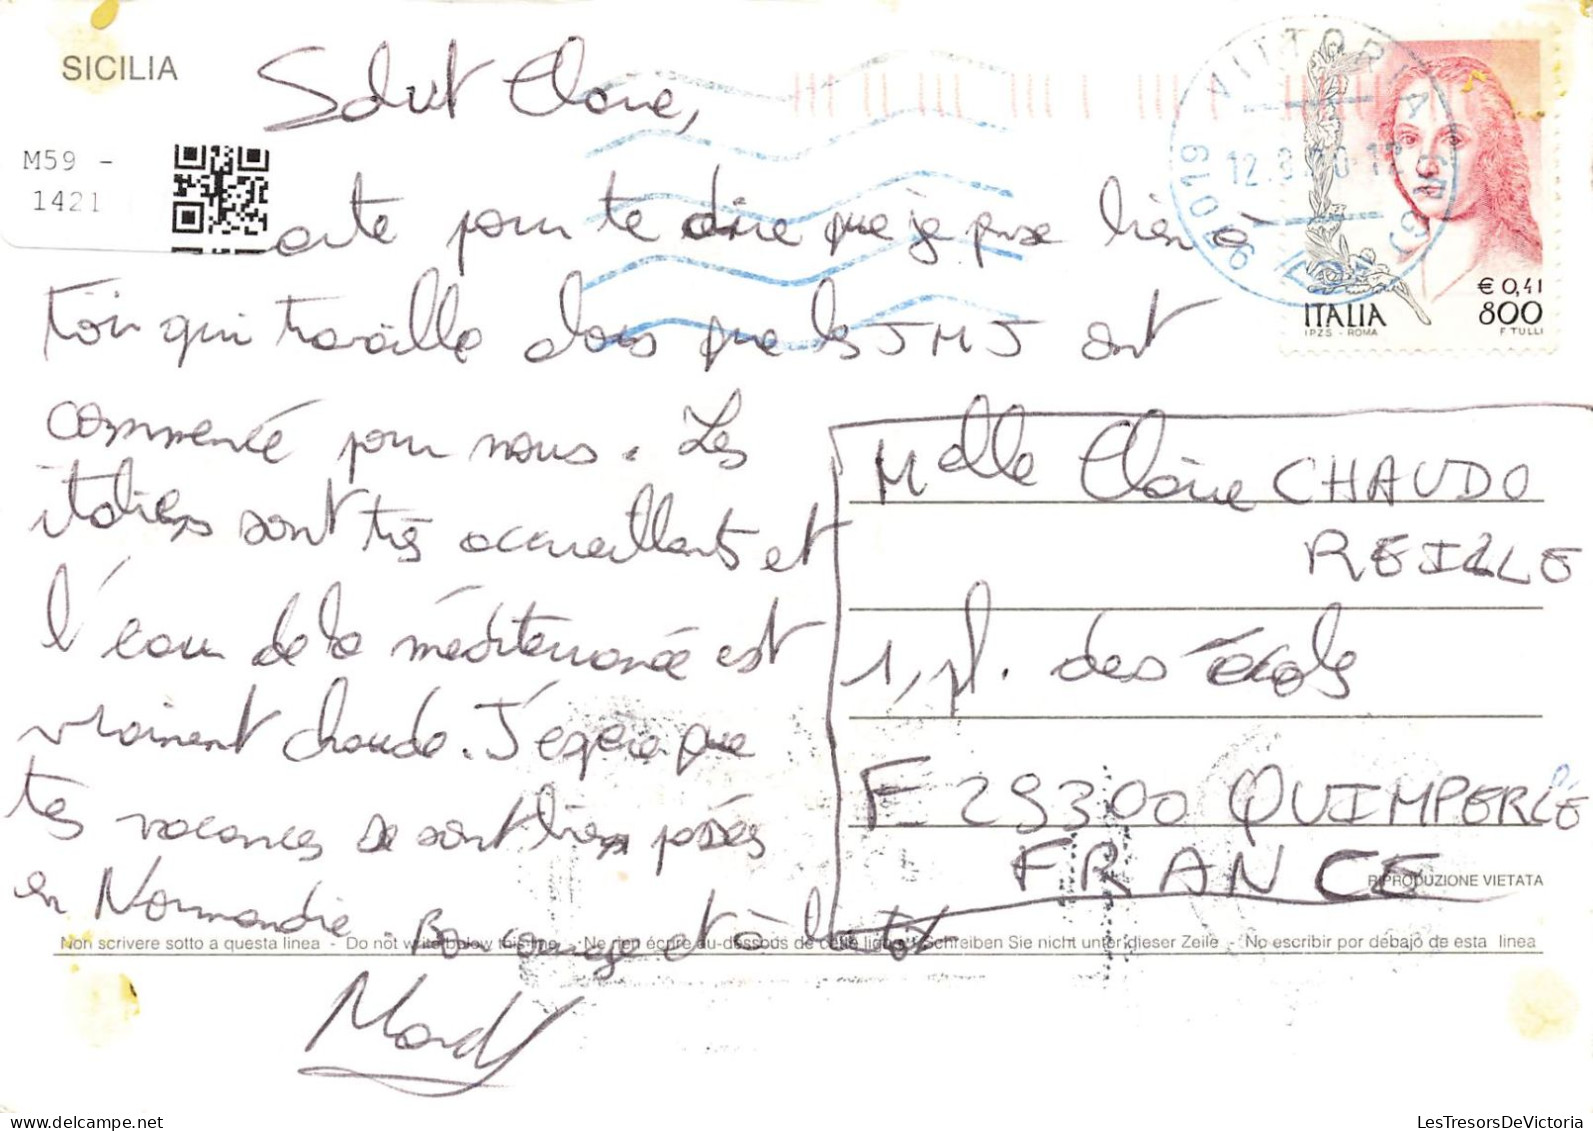 SICILIA
Salut Claire,
M59 -
1421
carte pour te dire que je pense bien à
toi qui travaille alors que les JMJ ont
commencé pour nous. Les
italiens sont très accueillants et
l'eau de la méditerranée est
vraiment chaude. J'espère que
tes vacances se sont bien passées
en Normandie. Bon courage et à bientôt
VITTORIA
97019
12.8.
ITALIA
€ 0,41
800
I.P.Z.S. - ROMA
F. TULLI
Melle Claire CHAUDO
REILLE
1, pl. des écoles
F 29300 QUIMPERLÉ
FRANCE
RIPRODUZIONE VIETATA
Non scrivere sotto a questa linea - Do not write below this line - Ne rien écrire au-dessous de cette ligne - Schreiben Sie nicht unter dieser Zeile - No escribir por debajo de esta linea
LesTresorsDeVictoria.com